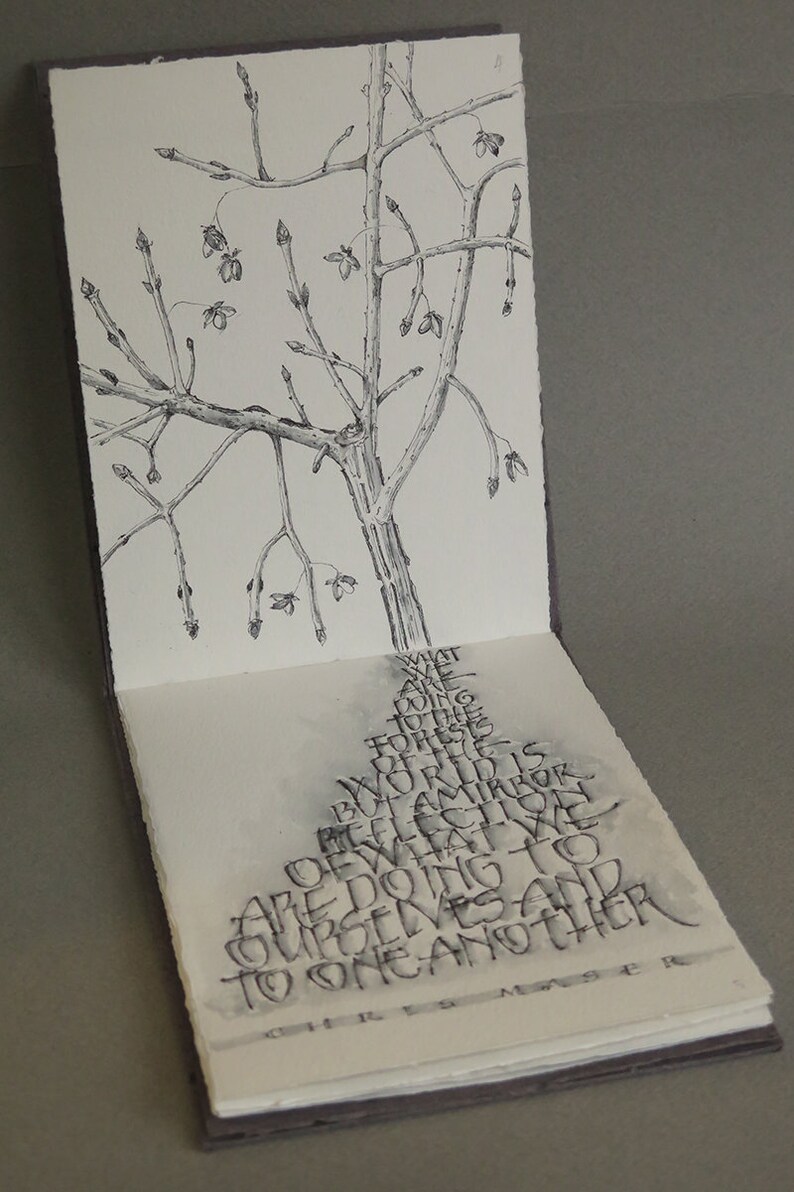 WHAT
WE
ARE
DOING
TO THE
FORESTS
OF THE
WORLD IS
BUT A MIRROR
REFLECTION
OF WHAT WE
ARE DOING TO
OURSELVES AND
TO ONE ANOTHER
CHRIS MASER